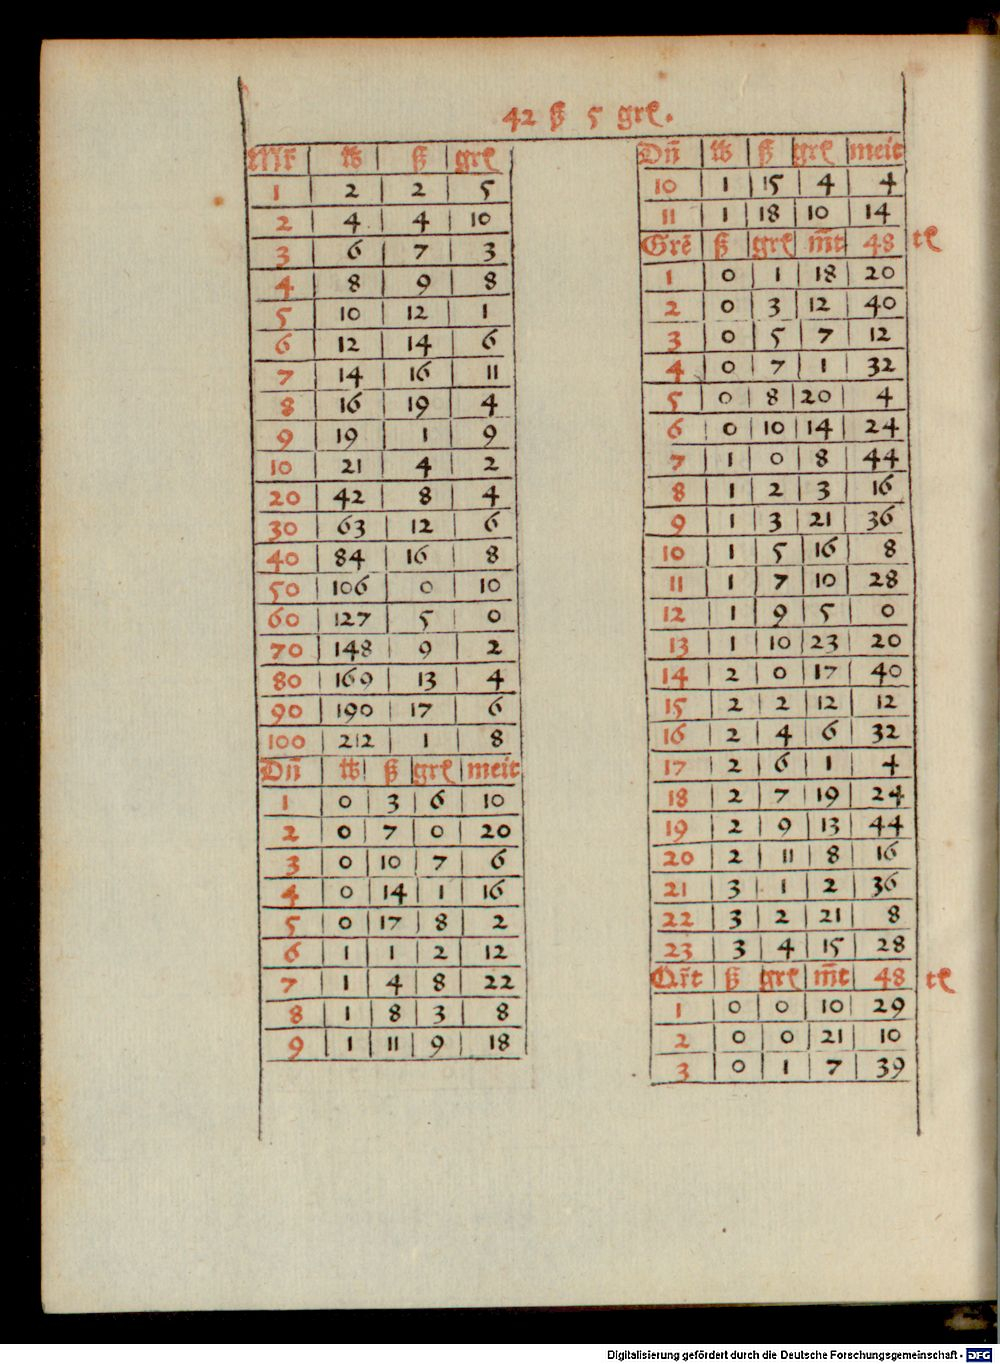 42 ß 5 grꝭ.
Mr̃ | lb | ß | grꝭ
1 | 2 | 2 | 5
2 | 4 | 4 | 10
3 | 6 | 7 | 3
4 | 8 | 9 | 8
5 | 10 | 12 | 1
6 | 12 | 14 | 6
7 | 14 | 16 | 11
8 | 16 | 19 | 4
9 | 19 | 1 | 9
10 | 21 | 4 | 2
20 | 42 | 8 | 4
30 | 63 | 12 | 6
40 | 84 | 16 | 8
50 | 106 | 0 | 10
60 | 127 | 5 | 0
70 | 148 | 9 | 2
80 | 169 | 13 | 4
90 | 190 | 17 | 6
100 | 212 | 1 | 8
Dñ | lb | ß | grꝭ | meit
1 | 0 | 3 | 6 | 10
2 | 0 | 7 | 0 | 20
3 | 0 | 10 | 7 | 6
4 | 0 | 14 | 1 | 16
5 | 0 | 17 | 8 | 2
6 | 1 | 1 | 2 | 12
7 | 1 | 4 | 8 | 22
8 | 1 | 8 | 3 | 8
9 | 1 | 11 | 9 | 18
Dñ | lb | ß | grꝭ | meit
10 | 1 | 15 | 4 | 4
11 | 1 | 18 | 10 | 14
Grẽ | ß | grꝭ | m̃t | 48 tꝭ
1 | 0 | 1 | 18 | 20
2 | 0 | 3 | 12 | 40
3 | 0 | 5 | 7 | 12
4 | 0 | 7 | 1 | 32
5 | 0 | 8 | 20 | 4
6 | 0 | 10 | 14 | 24
7 | 1 | 0 | 8 | 44
8 | 1 | 2 | 3 | 16
9 | 1 | 3 | 21 | 36
10 | 1 | 5 | 16 | 8
11 | 1 | 7 | 10 | 28
12 | 1 | 9 | 5 | 0
13 | 1 | 10 | 23 | 20
14 | 2 | 0 | 17 | 40
15 | 2 | 2 | 12 | 12
16 | 2 | 4 | 6 | 32
17 | 2 | 6 | 1 | 4
18 | 2 | 7 | 19 | 24
19 | 2 | 9 | 13 | 44
20 | 2 | 11 | 8 | 16
21 | 3 | 1 | 2 | 36
22 | 3 | 2 | 21 | 8
23 | 3 | 4 | 15 | 28
Qr̃t | ß | grꝭ | m̃t | 48 tꝭ
1 | 0 | 0 | 10 | 29
2 | 0 | 0 | 21 | 10
3 | 0 | 1 | 7 | 39
Digitalisierung gefördert durch die Deutsche Forschungsgemeinschaft - DFG